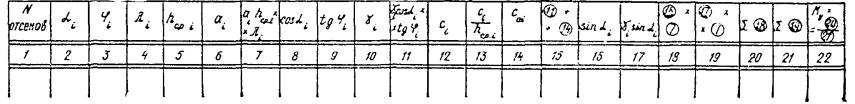 N отсеков α_i φ_i λ_i h_cp i a_i a_i h_cp i × × λ_i cos α_i tg φ_i γ_i γ_i cos α_i × × tg φ_i c_i c_i / h_cp i c_oi ⑬ + + ⑭ sin α_i γ_i sin α_i ⑮ × ⑦ ⑰ × ⑦ Σ ⑱ Σ ⑲
1 2 3 4 5 6 7 8 9 10 11 12 13 14 15 16 17 18 19 20 21 22